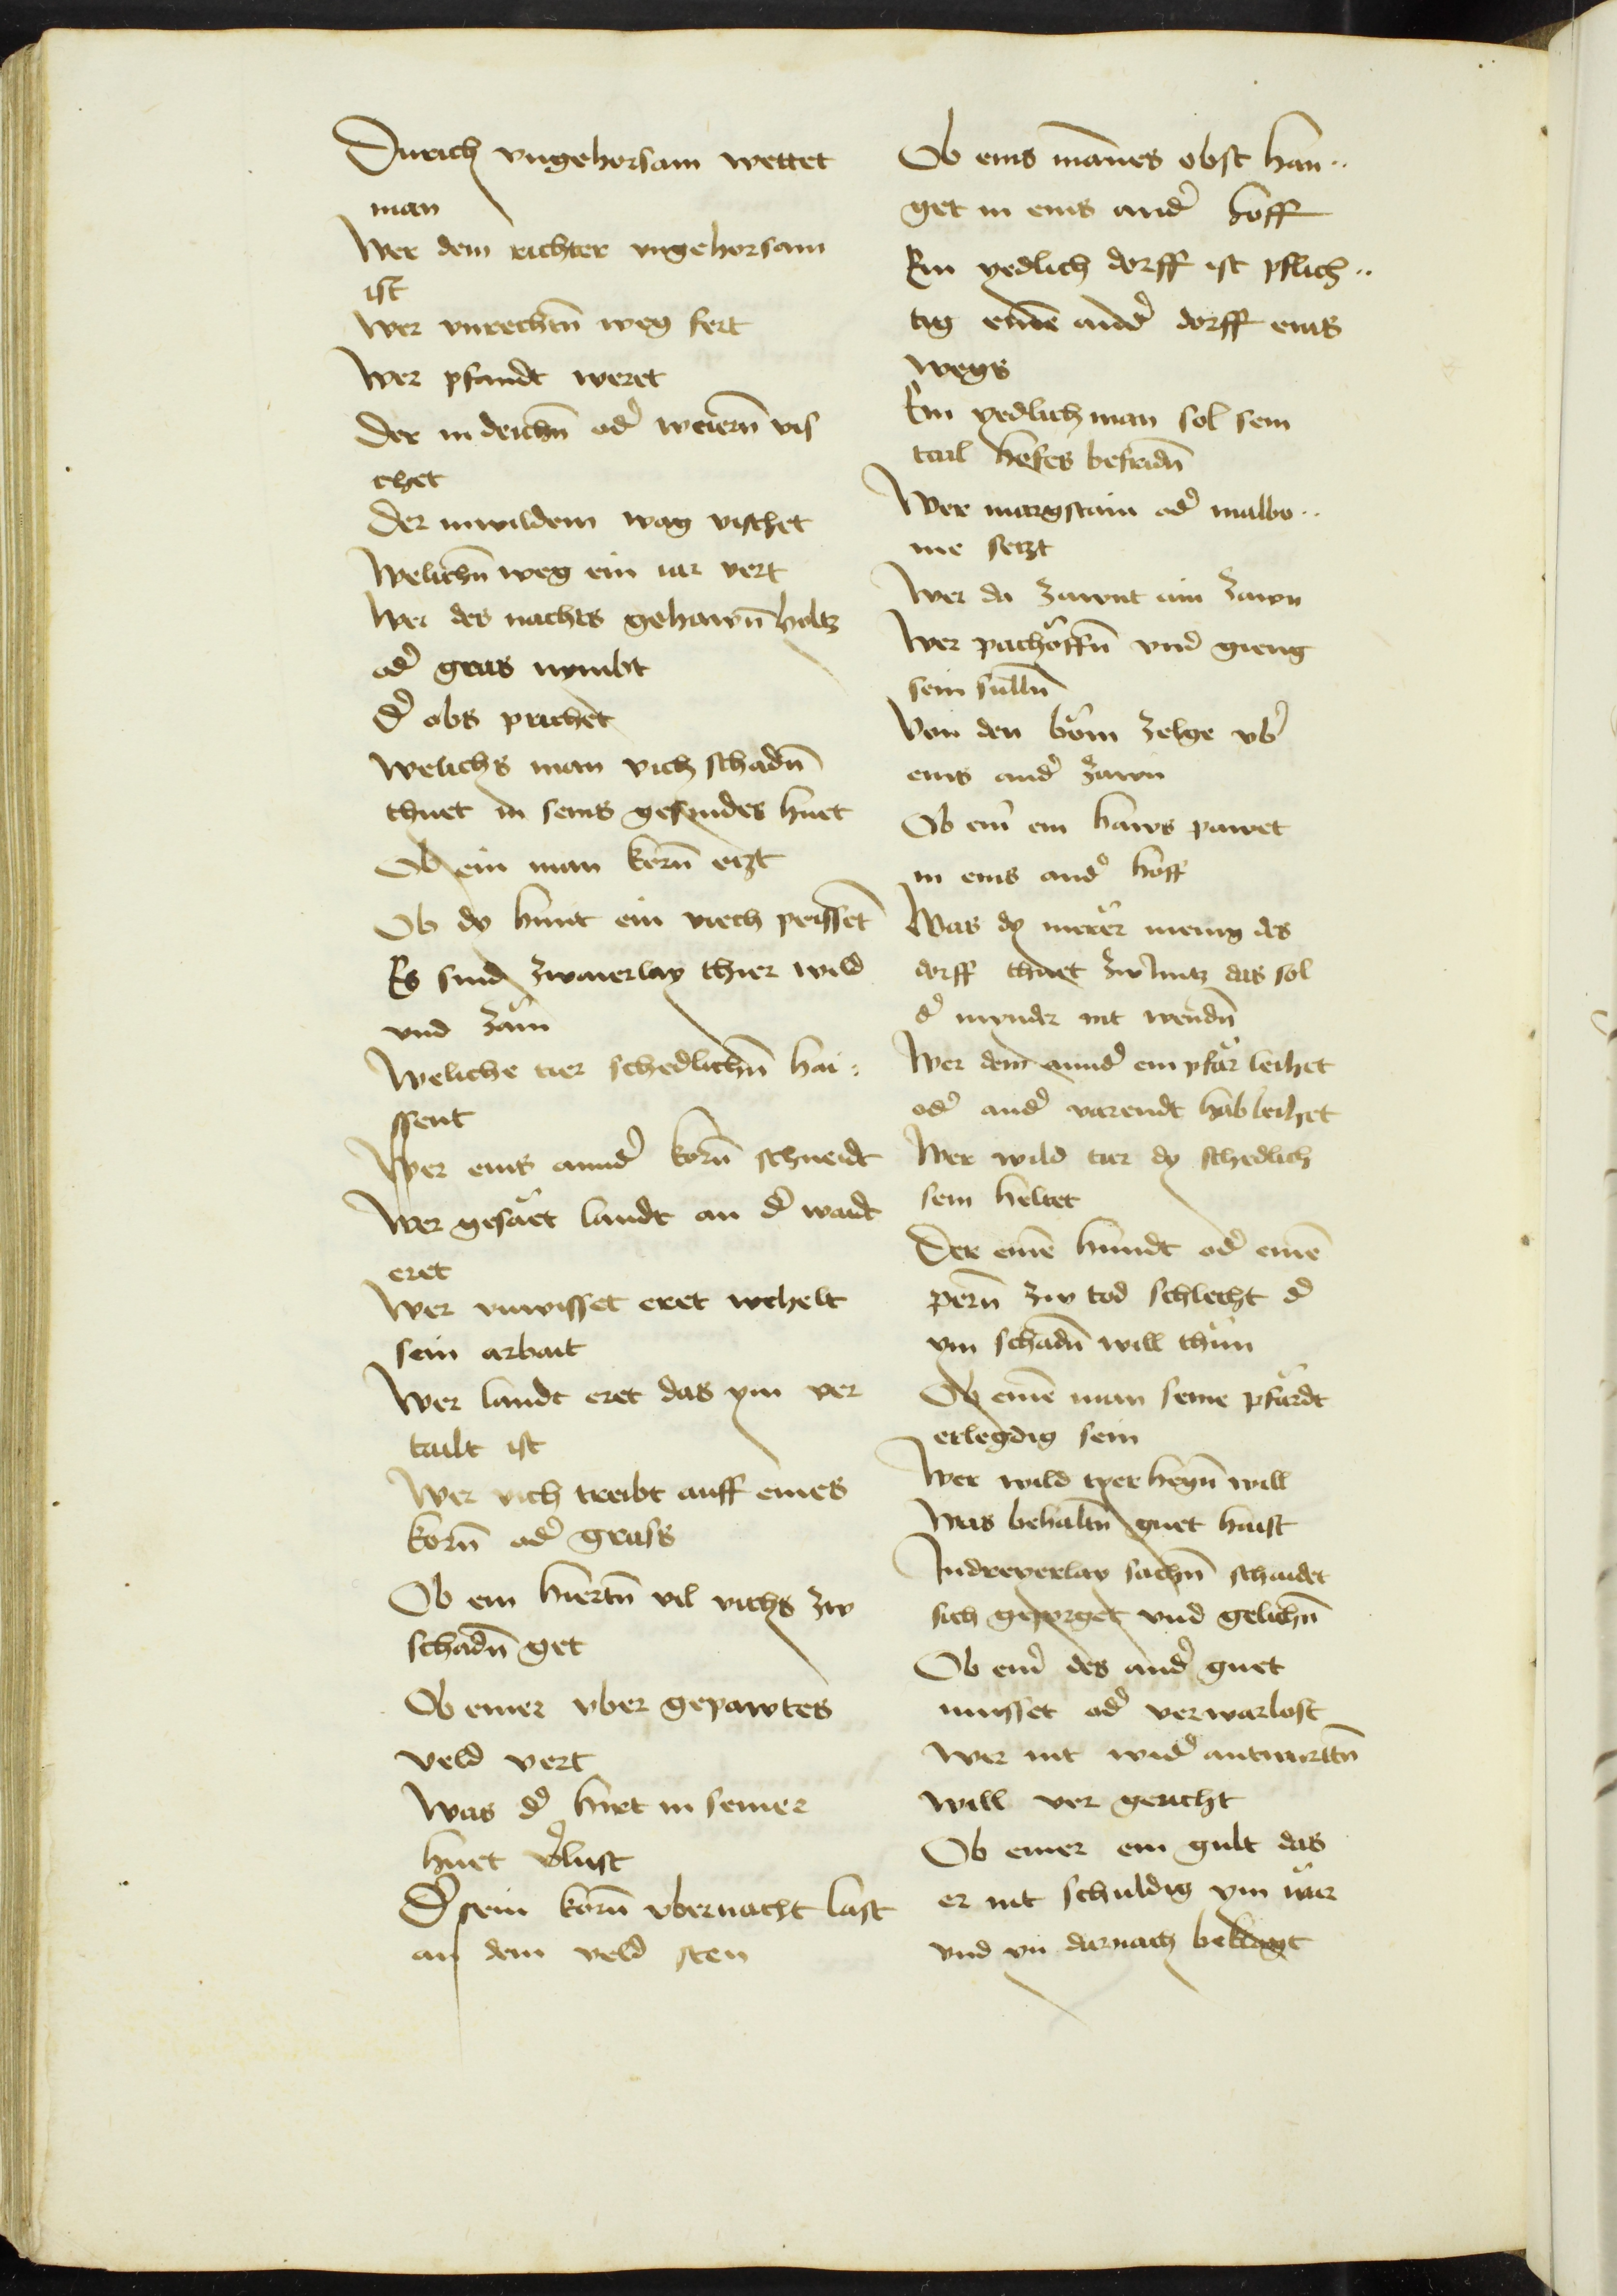 Durich vngehorsam wettet
man
Wer dem richter vngehorsam
ist
Wer vnrechtn̄ weg fert
Wer pfandt weret
Der in deichn̄ od̓ weiern̄ vis
chet
Der in wildem wag vischet
Welichn̄ weg ein iar vert
Wer des nachts gehawn̄ holtz
od̓ gras nymbt
D̓ obs prichet
Welichs man vich schadn̄
thuet in seins gesindes huet
Ob ein man korn̄ etzt
Ob dy hunt ein viech peisset
Es sind zwaierlay thier wild
vnd zam
Weliche tier schedlichn̄ hai⸗
ssent
Wer eins annd̓ korn̄ schneidt
Wer gesaet landt an d̓ waidt
eret
Wer vnwisset eret wehelt
sein arbait
Wer landt eret das ym ver
tailt ist
Wer vich treibt auff eines
korn̄ od̓ grass
Ob ein hiertn̄ vil vichs zw
schadn̄ get
Ob einer vber gepawtes
veld vert
Was d̓ hirt in seiner
huet v̓lust
D̓ sein korn̄ vbernacht last
an dem veld sten
Ob eins mānes obst han..
get in eins and̓ hoff
Ein yedlich dorff ist pflich..
tig einē and̓ dorff eins
wegs
Ein yedlich man sol sein
tail hofes befridn̄
Wer margstain od̓ malbo..
me setzt
Wer da zawnt ain zawn
Wer pachoffn̄ vnd gieng
sein sulln̄
Von den bom zelge vb̓
eins and̓ zawn
Ob ein̓ ein haws pawet
in eins and̓ hoff
Was dy merer mening des
dorff thuet zw nutz das sol
d̓ mynder nit wendn̄
Wer dem annd̓ ein pfar leihet
od̓ and̓ varendt hab leihet
Wer wild tier dy schedlich
sein heltet
Der einē hundt od̓ einē
pern̄ zw tod schlecht d̓
ym schadn̄ will thun
Ob einē man seine pfardt
erlegdig sein
Wer wild tyer hegn̄ will
Was behaltn̄ guet haist
In dreyerlay sachn̄ schaidet
sich geporget vnd gelichn̄
Ob ein̓ des and̓ guet
nusset od̓ verwarlost
Wer nit wid̓ antwurttn̄
will vor gericht
Ob einer ein gult das
er nit schuldig ym war
vnd yn darnach beklagt